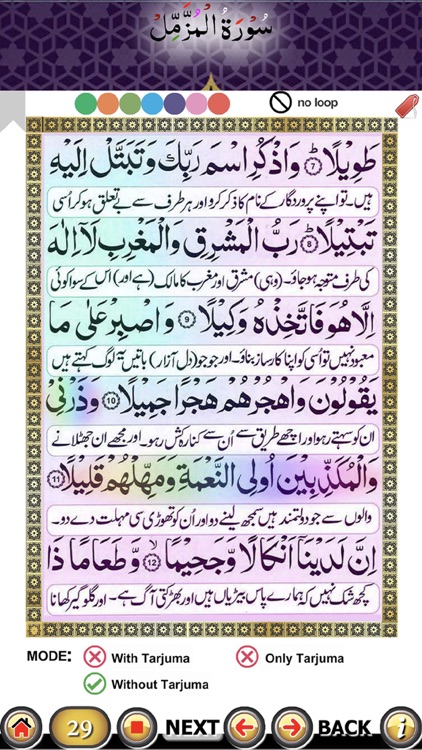 سُوْرَةُ الْمُزَّمِّل
no loop
طَوِيْلًا ۝٧ وَاذْكُرِ اسْمَ رَبِّكَ وَتَبَتَّلْ اِلَيْهِ
ہیں۔ تو اپنے پروردگار کے نام کا ذکر کرو اور ہر طرف سے بے تعلق ہو کر اُسی
تَبْتِيْلًا ۝٨ رَبُّ الْمَشْرِقِ وَالْمَغْرِبِ لَآ اِلٰهَ
کی طرف متوجہ ہو جاؤ۔ (وہی) مشرق اور مغرب کا مالک (ہے اور) اس کے سوا کوئی
اِلَّا هُوَ فَاتَّخِذْهُ وَكِيْلًا ۝٩ وَاصْبِرْ عَلٰى مَا
معبود نہیں تو اُسی کو اپنا کارساز بناؤ۔ اور جو جو (دل آزار) باتیں یہ لوگ کہتے ہیں
يَقُوْلُوْنَ وَاهْجُرْهُمْ هَجْرًا جَمِيْلًا ۝١٠ وَذَرْنِيْ
ان کو سہتے رہو اور اچھے طریق سے اُن سے کنارہ کش رہو۔ اور مجھے ان جھٹلانے
وَالْمُكَذِّبِيْنَ اُولِى النَّعْمَةِ وَمَهِّلْهُمْ قَلِيْلًا ۝١١
والوں سے جو دولتمند ہیں سمجھ لینے دو اور اُن کو تھوڑی سی مہلت دے دو۔
اِنَّ لَدَيْنَآ اَنْكَالًا وَّجَحِيْمًا ۝١٢ وَّطَعَامًا ذَا
کچھ شک نہیں کہ ہمارے پاس بیڑیاں ہیں اور بھڑکتی آگ ہے۔ اور گلوگیر کھانا
MODE: With Tarjuma Only Tarjuma
Without Tarjuma
29 NEXT BACK i